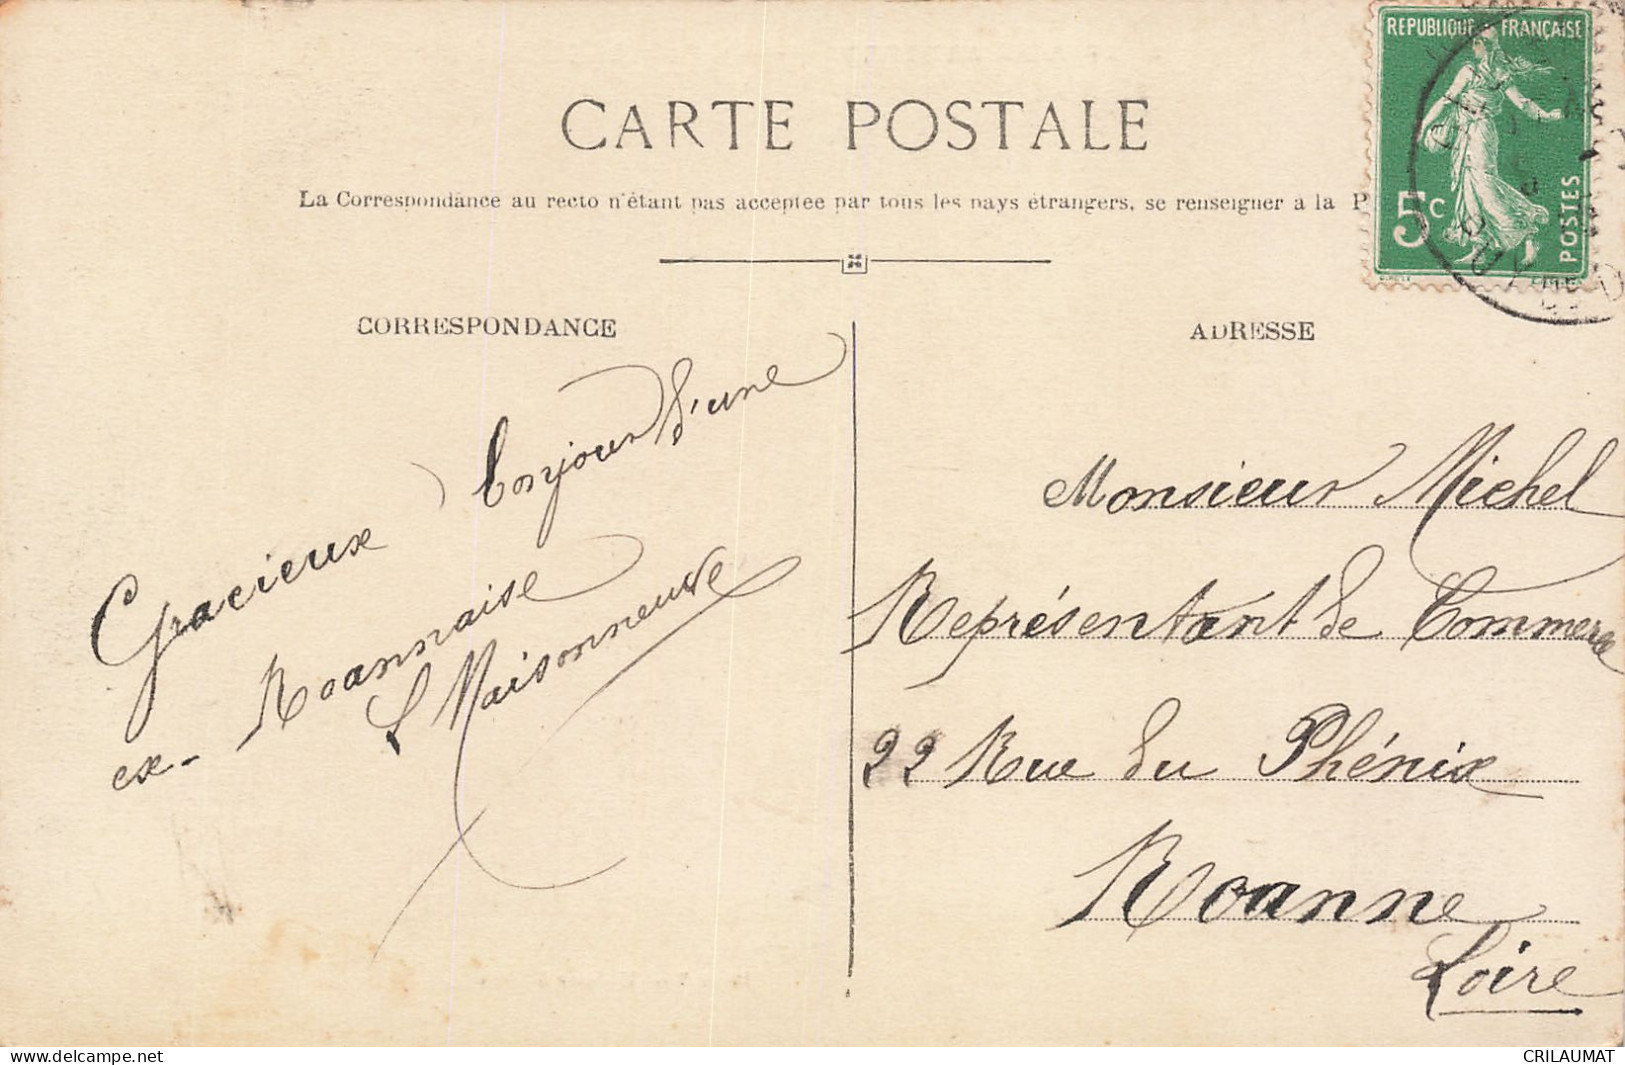 REPUBLIQUE FRANÇAISE
5c
POSTES
CARTE POSTALE
La Correspondance au recto n'étant pas acceptee par tous les pays étrangers, se renseigner a la P
CORRESPONDANCE
Gracieux bonjour d'une
ex-Roannaise
L Maisonneuve
ADRESSE
Monsieur Michel
Représentant de Commerce
22 Rue du Phénix
Roanne
Loire
www.delcampe.net
CRILAUMAT